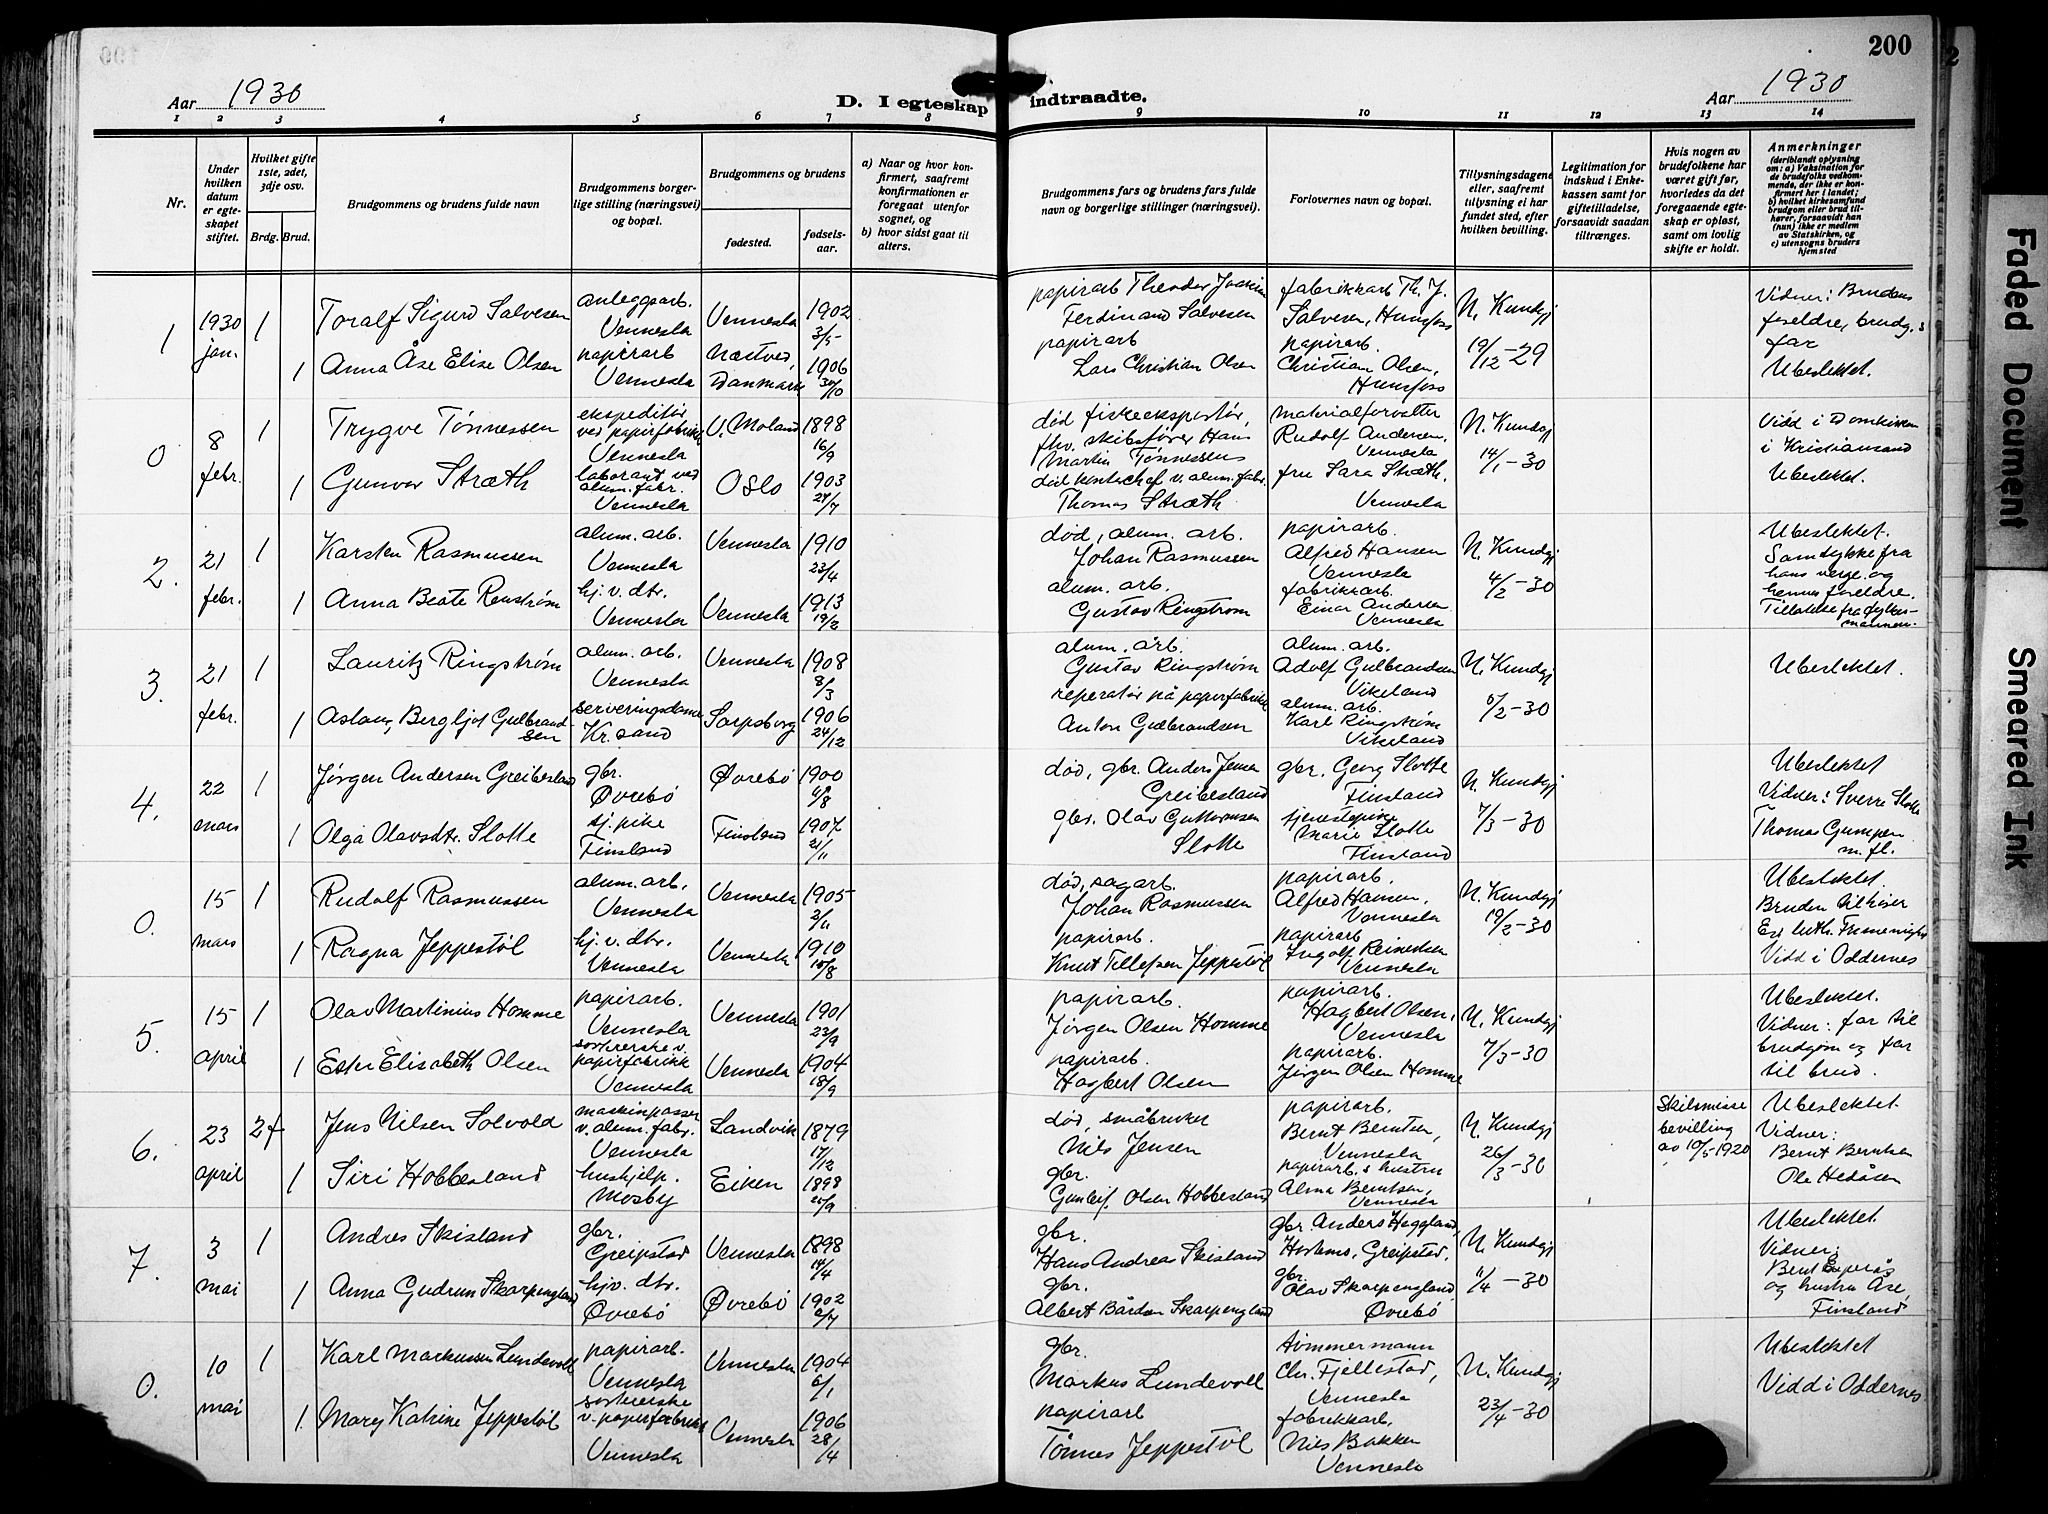 200
Aar 1930
D. I egteskap indtraadte.
Aar 1930
1 2 3 4 5 6 7 8 9 10 11 12 13 14
Nr.
Under hvilken datum er egteskapet stiftet.
Hvilket gifte 1ste, 2det, 3dje osv.
Brdg. Brud.
Brudgommens og brudens fulde navn
Brudgommens borgerlige stilling (næringsvei) og bopæl.
Brudgommens og brudens
fødested.
fødselsaar.
a) Naar og hvor konfirmert, saafremt konfirmationen er foregaat utenfor sognet, og
b) hvor sidst gaat til alters.
Brudgommens fars og brudens fars fulde navn og borgerlige stillinger (næringsvei).
Forlovernes navn og bopæl.
Tillysningsdagene eller, saafremt tillysning ei har fundet sted, efter hvilken bevilling.
Legitimation for indskud i Enkekassen samt for giftetilladelse, forsaavidt saadan tiltrænges.
Hvis nogen av brudefolkene har været gift før, hvorledes da det foregaaende egteskap er opløst, samt om lovlig skifte er holdt.
Anmerkninger
(deriblandt oplysning om: a) Vaksination for de brudefolks vedkommende, der ikke er konfirmert her i landet; b) hvilket kirkesamfund brudgom eller brud tilhører, forsaavidt han (hun) ikke er medlem av Statskirken, og c) utensogns bruders hjemsted
1
1930 jan.
1
Toralf Sigurd Salvesen
anleggsarb. Vennesla
Vennesla
1902 3/5
papirarb Theodor Joakim Ferdinand Salvesen
fabrikkarb Th. J. Salvesen, Hunsfoss
N. Kundgj 19/12-29
Vidner: Brudens foreldre, brudg.s far
Ubeslektet.
1
Anna Åse Elise Olsen
papirarb Vennesla
Næstved Danmark
1906 30/10
papirarb Lars Christian Olsen
papirarb. Christian Olsen, Hunsfoss
0
8 febr.
1
Trygve Tönnessen
ekspeditør ved papirfabrikk Vennesla
V. Moland
1898 16/9
død fiskeeksportør, fhv. skibsfører Hans Martin Tønnessens
materialforvalter Rudolf Andersen, Vennesla
N. Kundgj 14/1-30
Vidd i Domkirken i Kristiansand
Ubeslektet.
1
Gunvor Stræth
laborant ved alum. fabr. Vennesla
Oslo
1903 27/7
død kontorchef v. alum. fabr. Thomas Stræth
fru Sara Stræth, Vennesla
2.
21 febr.
1
Karsten Rasmussen
alum. arb. Vennesla
Vennesla
1910 23/4
død, alum. arb. Johan Rasmussen
papirarb. Alfred Hansen Vennesla
N. Kundgj 4/2-30
Ubeslektet.
Samtykke fra hans verge og hennes foreldre.
Tillatelse fra fylkesmannen.
1
Anna Beate Renstrøm
hj. v. dtr. Vennesla
Vennesla
1913 19/2
alum. arb. Gustav Ringstrøm
fabrikkarb. Einar Andersen Vennesla
3.
21 febr.
1
Lauritz Ringstrøm
alum. arb. Vennesla
Vennesla
1908 8/3
alum. arb. Gustav Ringstrøm
alum. arb. Adolf Gulbrandsen Vikeland
N. Kundgj 6/2-30
Ubeslektet.
1
Aslaug Bergljot Gulbrandsen
serveringsdame Kr. sand
Sarpsborg
1906 24/12
reperatør på papirfabrikk Anton Gulbrandsen
alum. arb. Karl Ringstrøm Vikeland
4.
22 mars
1
Jörgen Andersen Greibesland
gbr. Øvrebö
Øvrebö
1900 4/8
død, gbr. Anders Jensen Greibesland
gbr. Georg Slotte Finsland
N. Kundgj 7/3-30
Ubeslektet
Vidner: Sverre Slotte Thomas Gumpen m. fl.
1
Olga Olavsdtr. Slotte
tj. pike Finsland
Finsland
1907 21/11
gbr. Olav Guttormsen Slotte
tjenestepike Marie Slotte Finsland
0.
15 mars
1
Rudolf Rasmussen
alum. arb. Vennesla
Vennesla
1905 2/11
død, sagarb. Johan Rasmussen
papirarb. Alfred Hansen, Vennesla
N. Kundgj 19/2-30
Ubeslektet.
Bruden tilhører Ev. luth. Frimenighet
Vidd i Oddernes
1
Ragna Jeppestöl
hj. v. dtr. Vennesla
Vennesla
1910 15/8
papirarb. Knut Tellefsen Jeppestöl
papirarb Ingolf Reinertsen Vennesla
5.
15 april
1
Olav Martinius Homme
papirarb. Vennesla
Vennesla
1901 23/9
papirarb. Jörgen Olsen Homme
papirarb. Hagbert Olsen, Vennesla
N. Kundgj 7/3-30
Ubeslektet.
Vidner: far til brudgom og far til brud.
1
Ester Elisabeth Olsen
sortererske v. papirfabrikk Vennesla
Vennesla
1904 18/9
papirarb. Hagbert Olsen
papirarb. Jörgen Olsen Homme
6.
23 april
2f
Jens Nilsen Solvold
maskinpasser v. alum. fabr. Vennesla
Sandvik
1879 17/12
død, småbruker Nils Jensen
papirarb. Bernt Berntsen, Vennesla
N. Kundgj 26/3-30
Skilsmisse bevilling av 19/5-1920
Ubeslektet.
Vidner: Bernt Berntsen Ole Hedåsen
1
Siri Hobbesland
hushjelp. Mosby
Eiken
1898 25/9
gbr. Gunleif Olsen Hobbesland
papirarb.s hustru Alma Berntsen, Vennesla
7.
3 mai
1
Andres Skisland
gbr. Greipstad
Vennesla
1898 14/4
gbr. Hans Andreas Skisland
gbr. Anders Heggland, Greipstad.
N. Kundgj 11/4-30
Ubeslektet.
Vidner: Bent og hustru Åse, Finsland
1
Anna Gudrun Skarpengland
hjv. dtr. Øvrebö
Øvrebö
1902 2/7
gbr. Albert Bårdsen Skarpengland
gbr. Olav Skarpengland Øvrebö
0.
10 mai
1
Karl Markussen Lundevoll
papirarb. Vennesla
Vennesla
1904 6/1
gbr. Markus Lundevoll
tömmermann Chr. Fjellestad, Vennesla
N. Kundgj 23/4-30
Ubeslektet
Vidd i Oddernes
1.
Mary Katrine Jeppestöl
sortererske v. papirfabrikk Vennesla
Vennesla
1906 28/4
papirarb Tönnes Jeppestöl
fabrikkarb. Nils Bakken Vennesla
Faded Document
Smeared Ink
2